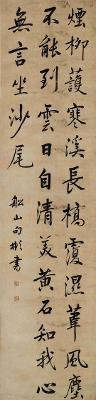 煙柳護寒溪長橋覆濕葦風塵
不能到雲日自清美黃石知我心
無言坐沙尾
船山
書